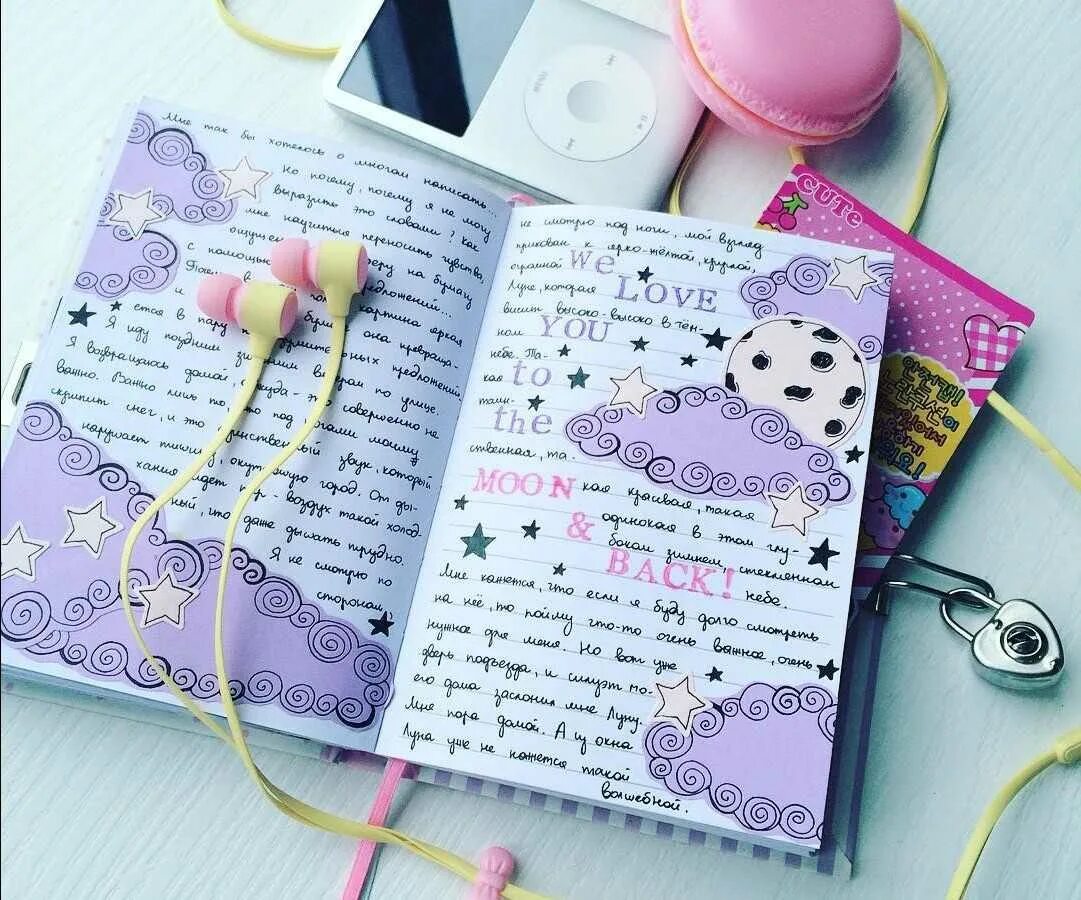 Мне так бы хотелось о многом написать...
Но почему, почему я не могу
выразить это словами? Как
мне научиться переносить чувства,
ощущен
с помощью предложений...
и картина яркая
ется в пару она превраща-
Я иду поздним зимним вечером по улице.
Я возвращаюсь домой, откуда - это совершенно не
важно. Важно лишь то, что под ногами моими
скрипит снег, и это единственный звук, который
нарушает тишину, окутавшую город. От ды-
хания идет пар - воздух такой холод-
ный, что даже дышать трудно.
Я не смотрю по
сторонам,
не смотрю под ноги, мой взгляд
прикован к ярко-жёлтой, круглой,
огромной
Луне, которая
висит высоко-высоко в тём-
ном
небе. Та-
кая
таин-
ственная, та-
кая красивая, такая
одинокая в этом глу-
боком зимнем, стеклянном
небе.
we
LOVE
YOU
to
the
MOON
&
BACK!
Мне кажется, что если я буду долго смотреть
на неё, то пойму что-то очень важное, очень
нужное для меня. Но вот уже
дверь подъезда, и силуэт мо-
его дома заслонил мне Луну.
Мне пора домой. А из окна
Луна уже не кажется такой
волшебной.
MENU
CUTe